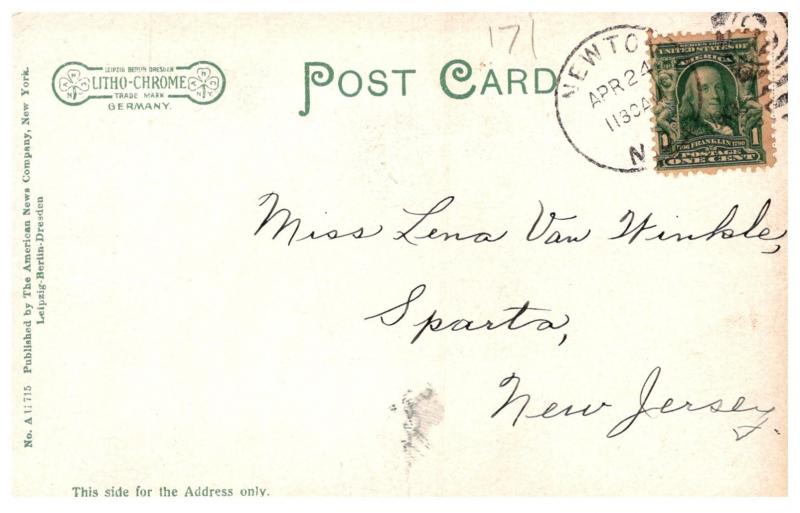 171
LEIPZIG BERLIN DRESDEN
LITHO-CHROME
TRADE MARK
GERMANY.
POST CARD
NEWTO
APR 24
1130A
N
SERIES 1902
UNITED STATES OF
AMERICA
1706 FRANKLIN 1790
1 POSTAGE 1
ONE CENT
Miss Lena Van Winkle,
Sparta,
New Jersey.
No. A 11715 Published by The American News Company, New York.
Leipzig-Berlin-Dresden
This side for the Address only.